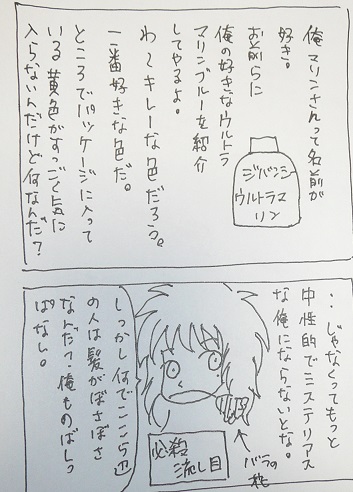 俺マリンさんって名前が
好き。
お前らに
俺の好きなウルトラ
マリンブルーを紹介
してやるよ。
わ~キレーな色だろう。
一番好きな色だ。
ところでパッケージに入って
いる黄色がすっごく気に
入らないんだけど何なんだ?
ジバンシー
ウルトラマ
リン
…じゃなくってもっと
中性的でミステリアス
な俺にならないとな。
バラの
花
必殺
流し目
しっかし何でここら辺
の人は髪がばさばさ
なんだ?俺ものばしっ
ぱなし。